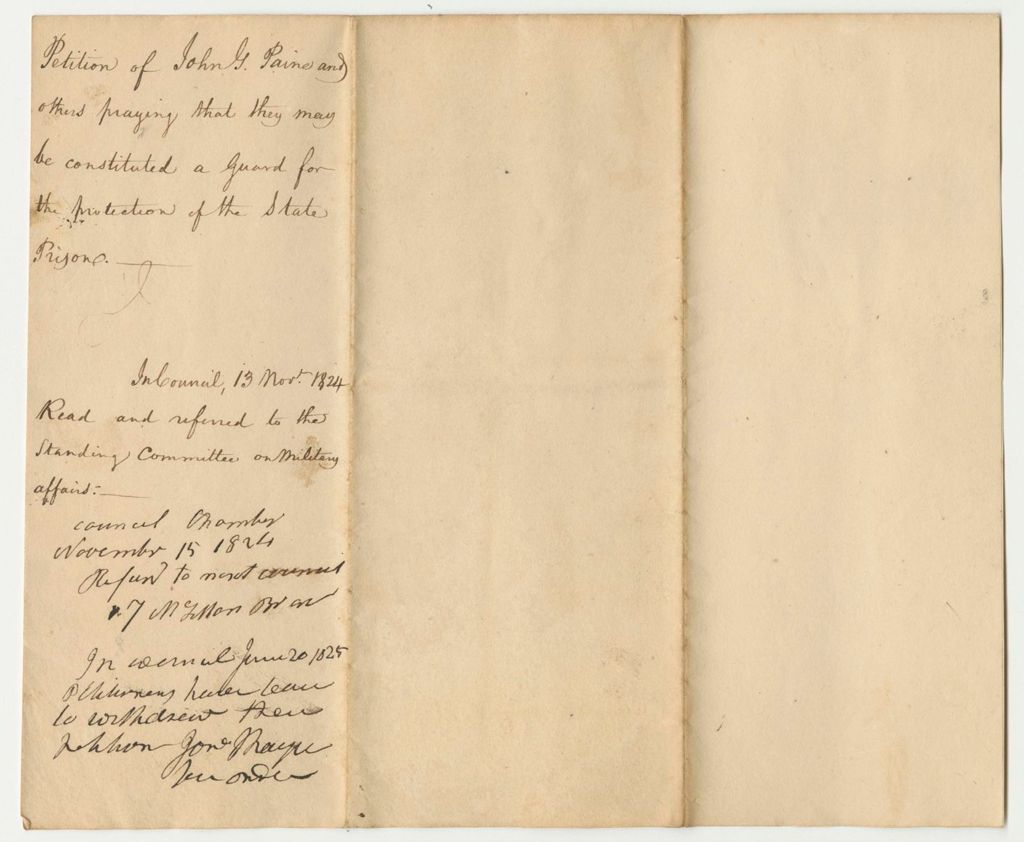 Petition of John G. Paine and
others praying that they may
be constituted a Guard for
the protection of the State
Prison.
In Council, 13 Nov.r 1824
Read and referred to the
Standing Committee on Military
affairs:
council Chamber
November 15 1824
Referd to next council
In council June 20 1825
Petitioners have leave
to withdraw their
petition Jon.a
per order